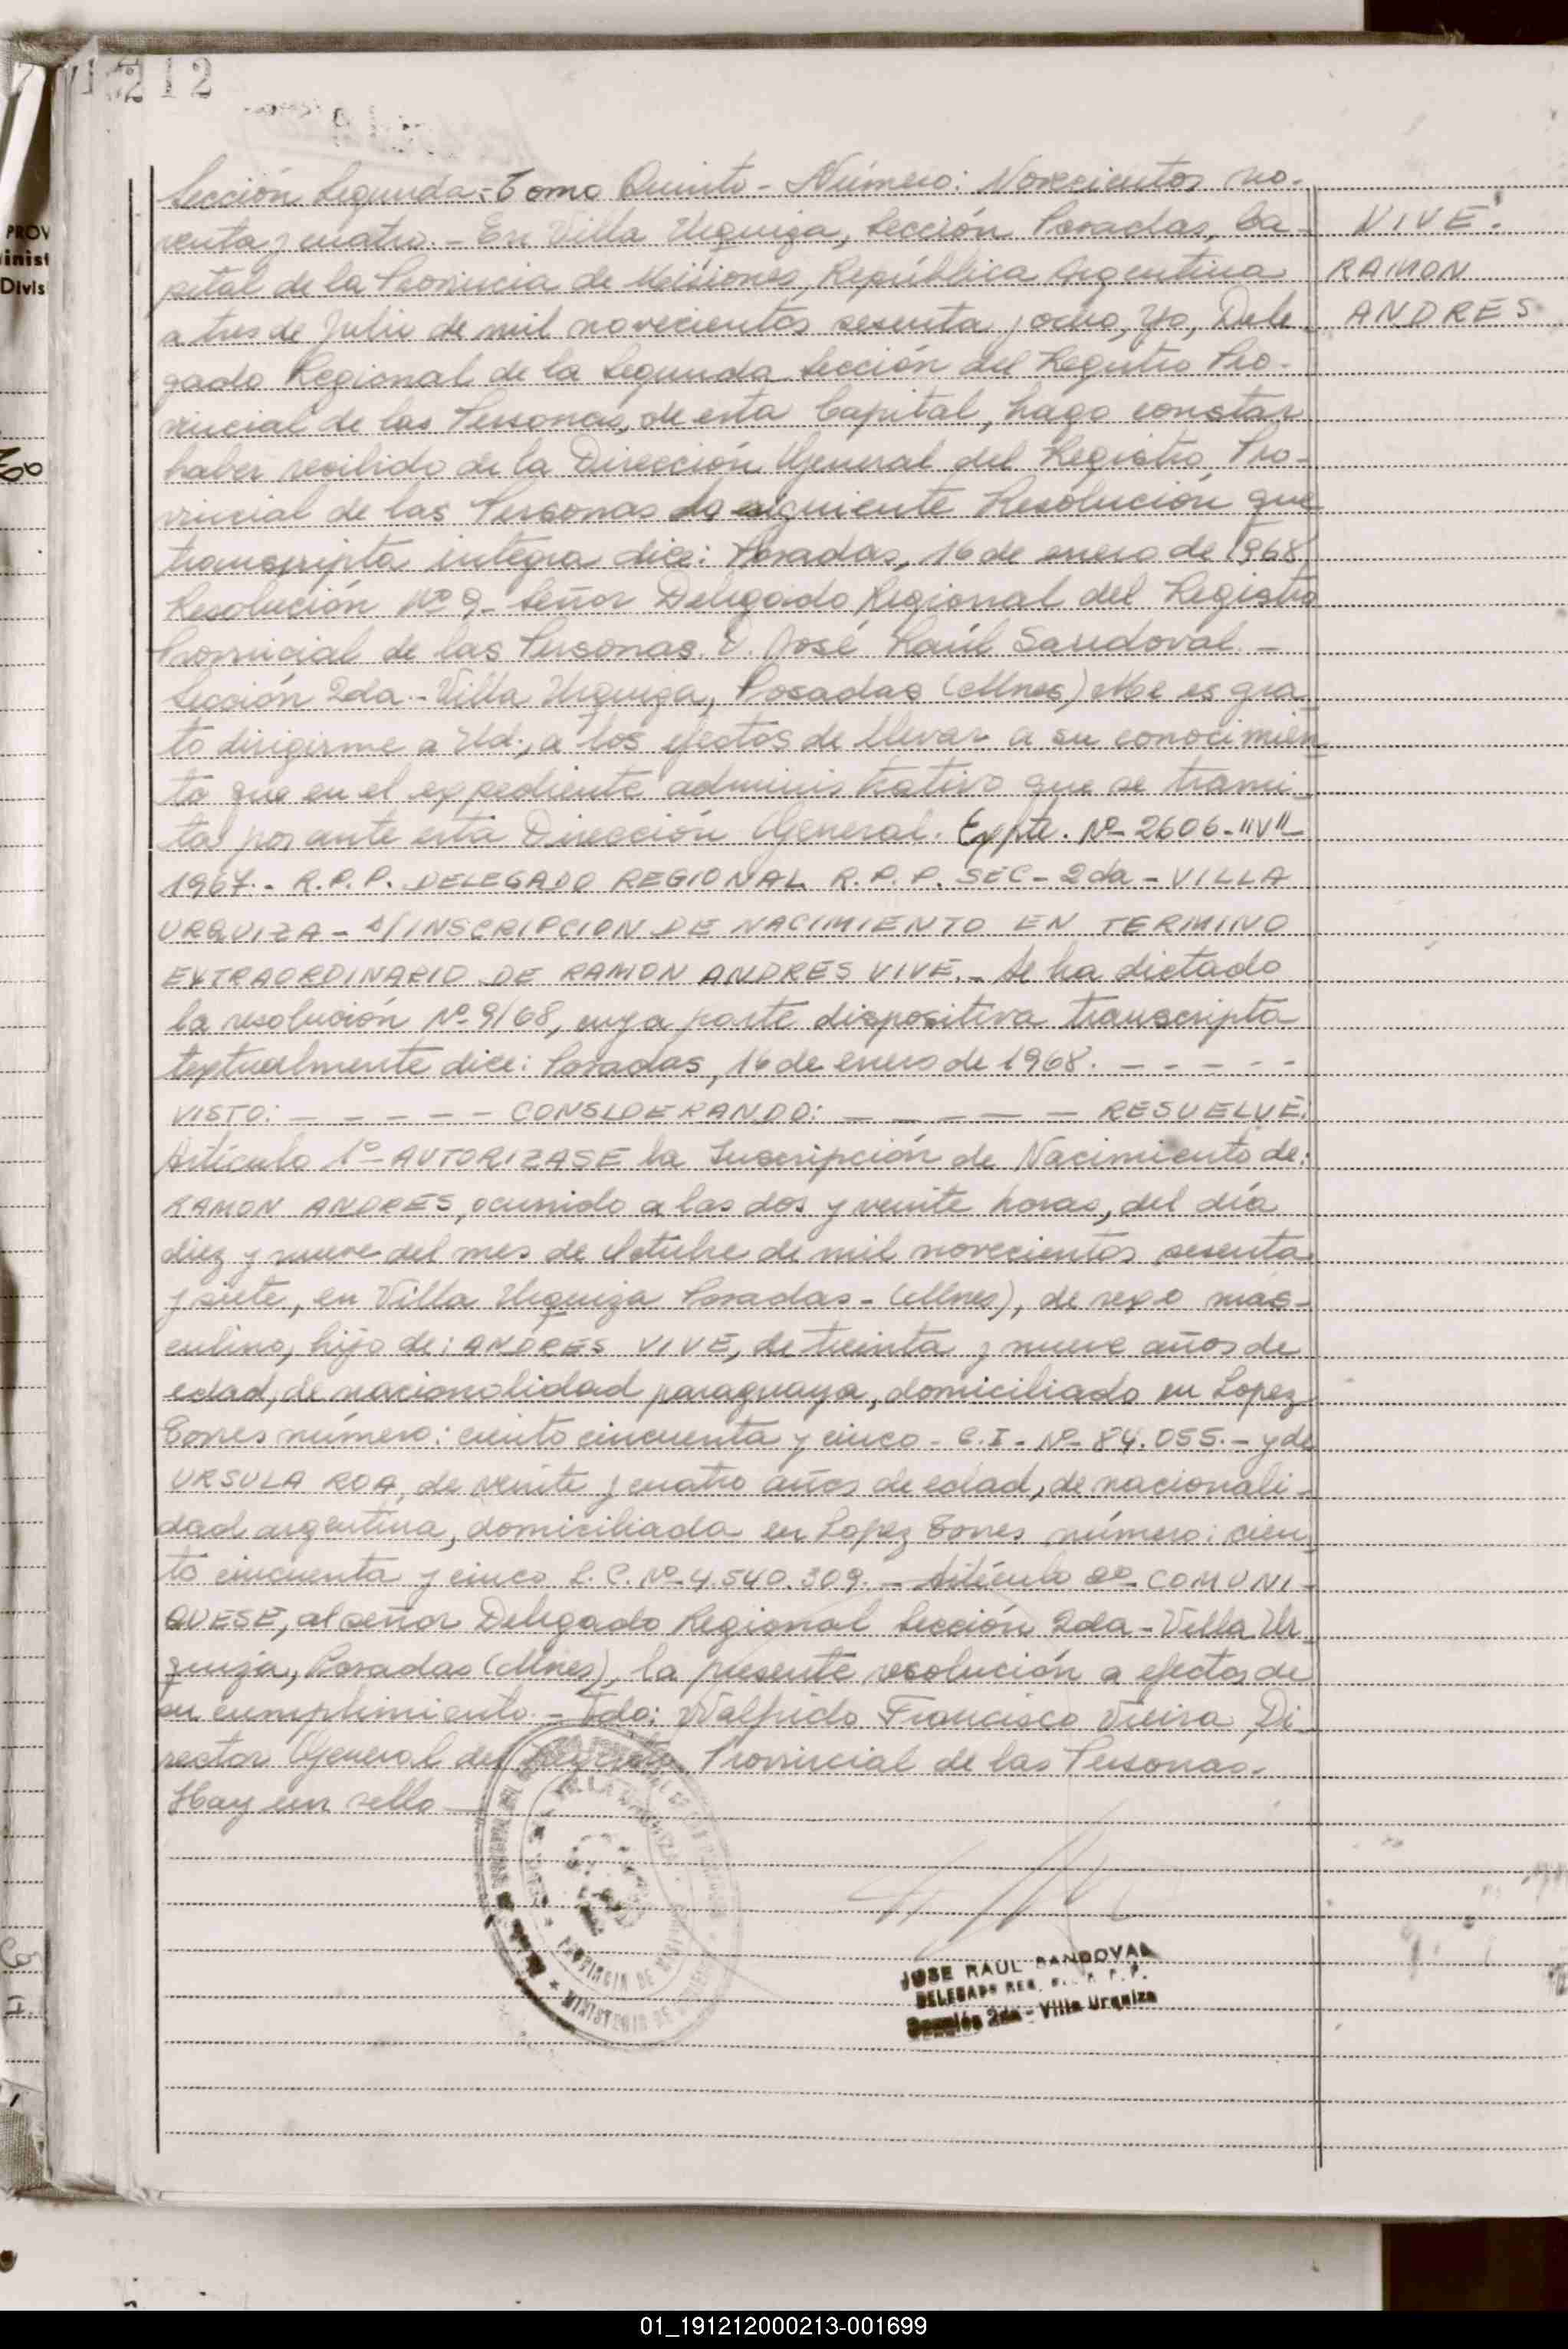 212
Sección Segunda - Tomo Quinto - Número: Novecientos no-
venta y cuatro. - En Villa Urquiza, Sección Posadas, Ca-
pital de la Provincia de Misiones, República Argentina
a tres de Julio de mil novecientos sesenta y ocho, Yo, Dele-
gado Regional de la Segunda Sección del Registro Pro-
vincial de las Personas, de esta Capital, hago constar
haber recibido de la Dirección General del Registro Pro-
vincial de las Personas la siguiente Resolución que
transcripta integra dice: Posadas, 16 de enero de 1968
Resolución Nº 9 - Señor Delegado Regional del Registro
Provincial de las Personas. D. José Raúl Sandoval. -
Sección 2da - Villa Urquiza, Posadas (Mnes) Me es gra-
to dirigirme a Ud., a los efectos de llevar a su conocimien-
to que en el expediente administrativo que se trami-
ta por ante esta Dirección General. Expte. Nº 2606-"V"-
1967. - R.P.P. DELEGADO REGIONAL R.P.P. SEC - 2da - VILLA
URQUIZA - S/INSCRIPCION DE NACIMIENTO EN TERMINO
EXTRAORDINARIO DE RAMON ANDRES VIVE. - Se ha dictado
la resolución Nº 9/68, cuya parte dispositiva transcripta
textualmente dice: Posadas, 16 de enero de 1968. - - - - -
VISTO: - - - - - CONSIDERANDO: - - - - - RESUELVE:
Artículo 1º - AUTORIZASE la Inscripción de Nacimiento de:
RAMON ANDRES, ocurrido a las dos y veinte horas, del día
diez y nueve del mes de Octubre de mil novecientos sesenta
y siete, en Villa Urquiza Posadas - (Mnes), de sexo mas-
culino, hijo de: ANDRES VIVE, de treinta y nueve años de
edad, de nacionalidad paraguaya, domiciliado en Lopez
Torres número: ciento cincuenta y cinco - C.I. - Nº 84.055. - y de
URSULA ROA, de veinte y cuatro años de edad, de nacionali-
dad argentina, domiciliada en Lopez Torres número: cien-
to cincuenta y cinco L.C. Nº 4.540.309. - Artículo 2º - COMUNI-
QUESE, al señor Delegado Regional Sección 2da - Villa Ur-
quiza, Posadas (Mnes), la presente resolución a efectos de
su cumplimiento. - Fdo: Walfrido Francisco Vieira, Di-
rector General del Registro Provincial de las Personas.
Hay un sello
VIVE:
RAMON
ANDRES
PROVINCIA DE
MINISTERIO DE
JOSE RAUL SANDOVAL
DELEGADO REG.
Sección 2da - Villa Urquiza
PROV
inist
Divis
01_191212000213-001699